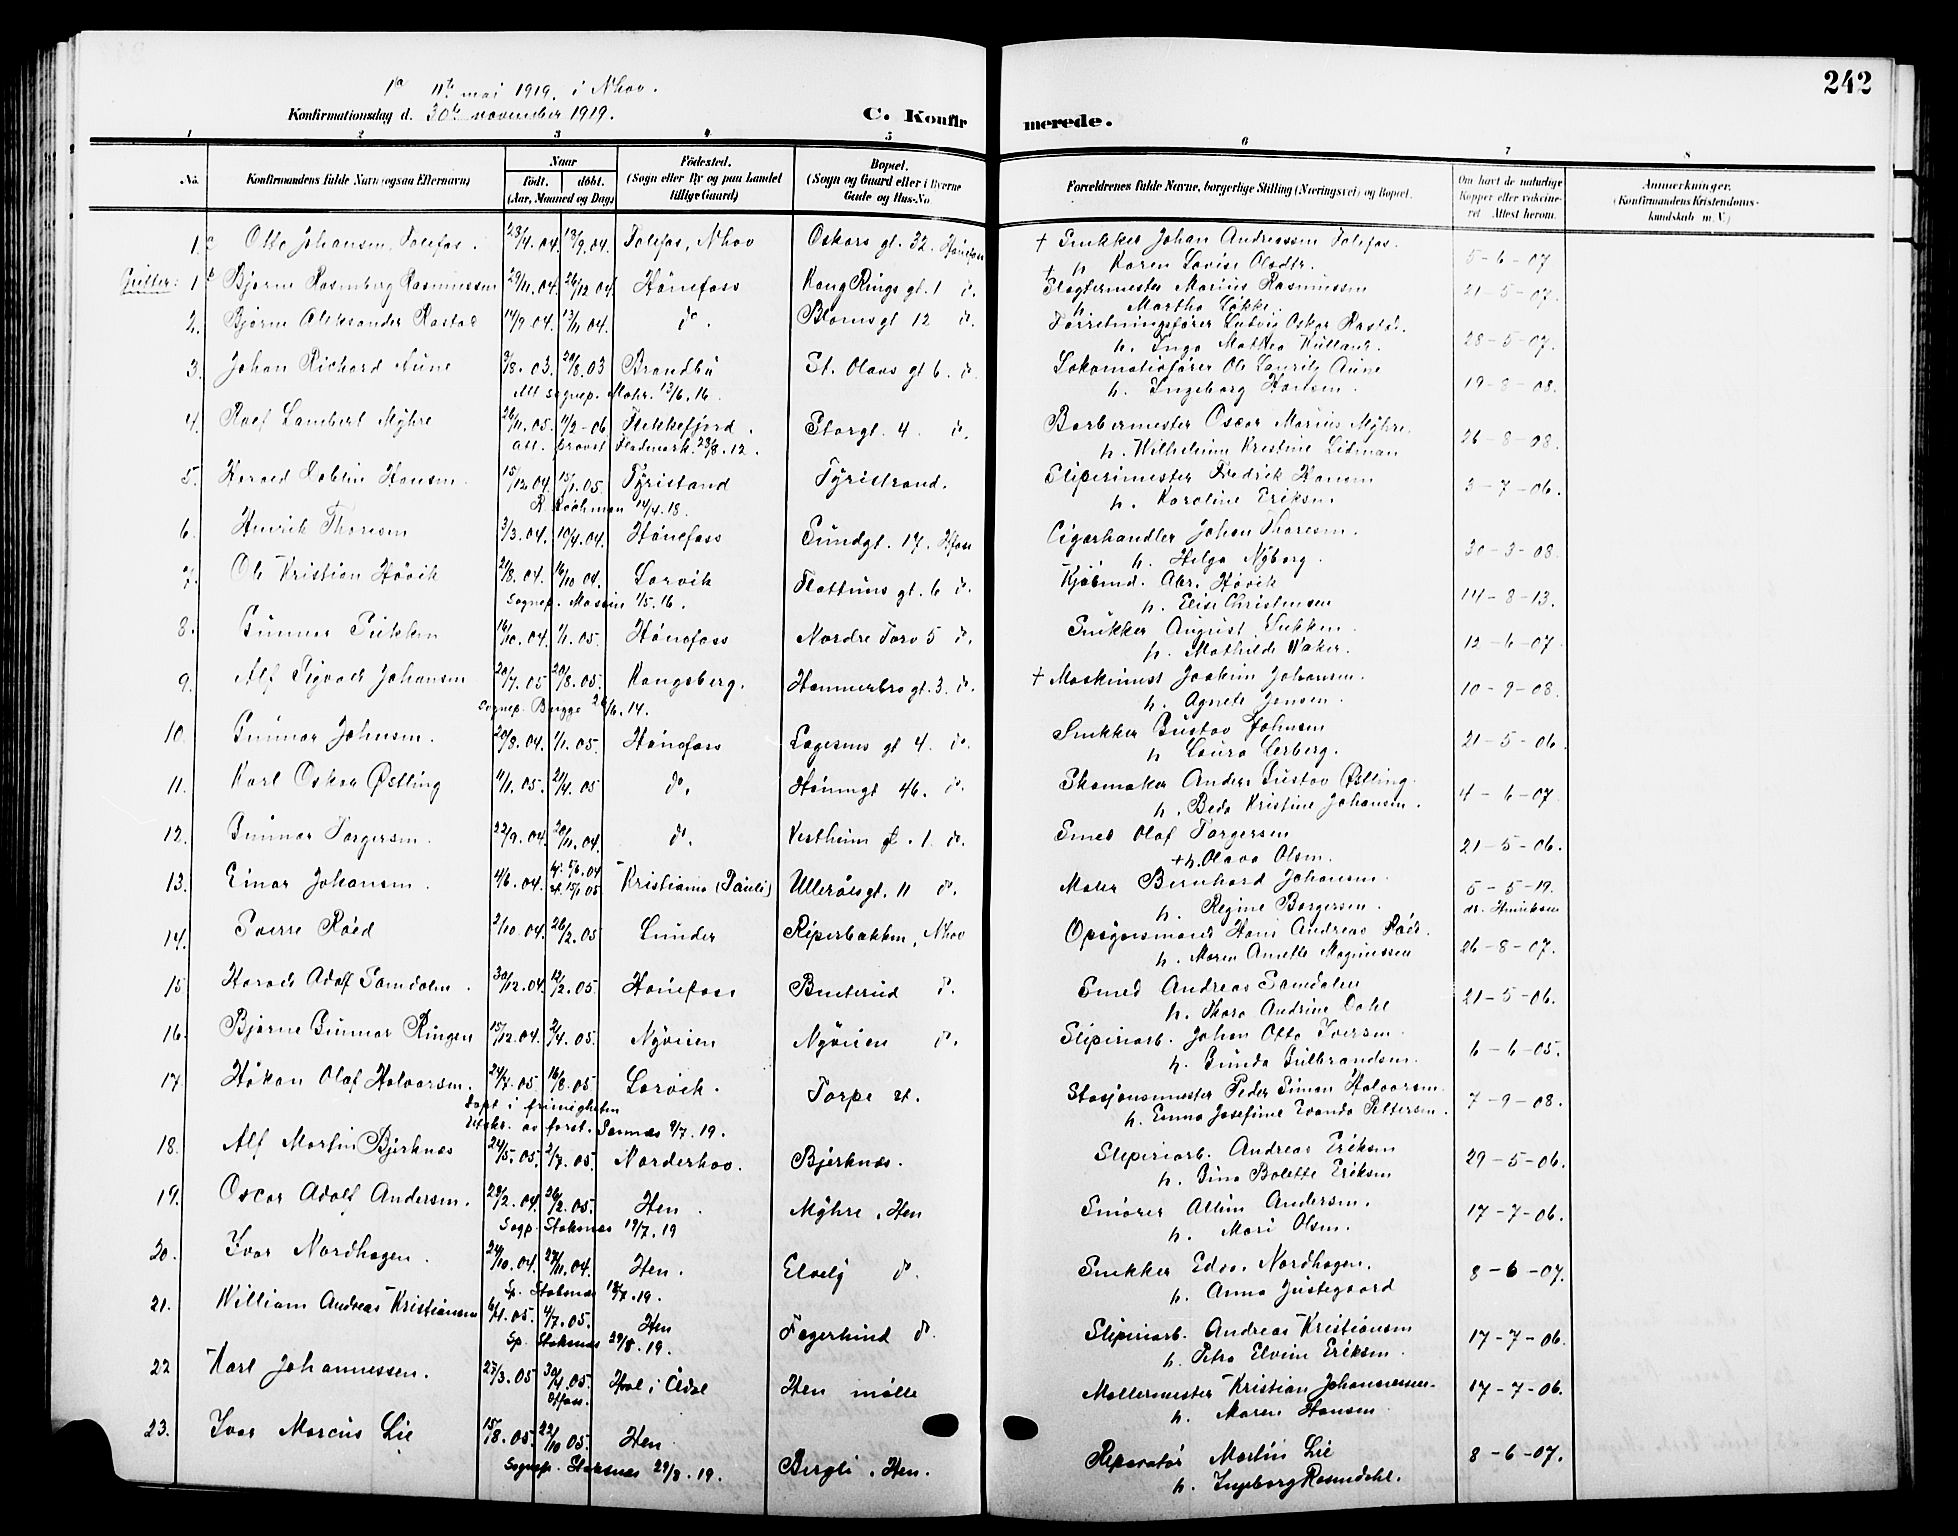 242
1a 11te mai 1919. i Nhov.
Konfirmationsdag d. 30te november 1919.
C. Konfir merede.
1 2 3 4 5 6 7 8
No. Konfirmandens fulde Navn (ogsaa Efternavn) Naar født. døbt. (Aar, Maaned og Dag) Fødested. (Sogn eller By og paa Landet tillige Gaard) Bopæl. (Sogn og Gaard eller i Byerne Gade og Hus-No. Forældrenes fulde Navne, borgerlige Stilling (Næringsvei) og Bopæl. Om havt de naturlige Kopper eller vakcineret. Attest herom. Anmerkninger. (Konfirmandens Kristendomskundskab m. V.)
1. a Otto Johansen, Tolefos. 23/4.04. 18/9.04. Tolefos, Nhov Oskars gt. 32. Hønefoss † Snikker Johan Andreassen Tolefos. 5-6-07
h. Karen Lovise Olsdtr.
Gutter: 1 b Bjarne Rosenberg Rasmussen 29/11.04. 26/12 04. Hønefoss Kong Rings gt. 1 do. Slagtermester Marius Rasmussen 21-5-07.
h. Martha Løkke.
2. Bjarne Aleksander Rastad 14/9 04. 13/11 04. do. Blomsgt 12 do. Forretningsfører Ludvig Oskar Rastad. 28-5-07.
h. Inga Mathea
3. Johan Richard Aune 3/8.03. 29/8.03 Brandbu St. Olavs gt 6. do. Lokomotivfører Ole Laurits Aune 19-8-08.
Att sognep. Mohr. 13/6.16. h. Ingeborg Karlsen.
4. Roef Lambert Myhre 26/11.05. 11/2-06 Flekkefjord. Storgt. 4 do. Barbermester Oscar Marius Myhre. 26-8-08.
Att. provst 23/8.12. h. Wilhelmine Kristine Lidman
5. Harald Hansen 15/12 04. 15/1.05. Tyristrand Tyristrand. Sliperimester Fredrik Hansen 3-7-06.
14/4.18. h. Karoline Eriksen
6. Henrik Thoresen 3/3.04. 10/4.04. Hønefoss Sundgt. 17. Hfoss Cigarhandler Johan Thoresen. 30-3-08.
h. Helga Nyborg.
7. Ole Kristian Høvik 21/8.04. 16/10 04. Larvik Flattums gt. 6 do. Kjøbmd. Høvik 14-8-13.
Sognep. 1/5.16. h. Elise Christensen
8. Gunnar Sukken 16/10.04. 1/1.05. Hønefoss Nordre Torv 5 do. Snikker August Sukken. 12-6-07
h. Mathilde Waker.
9. Alf Sigvald Johansen 20/7.05 20/8.05. Kongsberg. Hammerbrogt. 3. do. † Maskinist Joakim Johansen. 10-9-08.
Sognep. Bugge 26/6.14. h. Agnete Jensen.
10. Gunnar Johnsen. 20/8.04. 1/1.05. Hønefoss Lagesens gt 4. do. Snikker Gustav Johnsen 21-5-06.
h Laura Lerberg.
11. Karl Oskar Østling 11/1.05. 21/4.05 do. Hønengt 46. do. Skomaker Anders Gustav Østling. 4-6-07
h. Beda Kristine Johansen.
12. Gunnar Torgersen. 22/9.04. 20/11.04. do. Vestheim gt. 1 do. Smed Olaf Torgersen 21-5-06.
† h. Olava Olsen.
13. Einar Johansen. 4/6.04. hj. 5/6.04 st. 15/1 05 Kristiania (Pauli) Ullerålsgt. 11 do. Maler Bernhard Johansen. 5-5-19.
h. Regine Borgersen. dr. Henriksen
14. Sverre Røed 2/10.04. 26/2.05 Lunder Riperbakken, Nhov Opsynsmand Hans Andreas Røed. 26-8-07.
h. Maren Anette Magnussen
15 Harald Adolf Samdalen. 30/12.04. 12/2.05. Hønefoss Busterud do. Smed Andreas Samdalen 21-5-06.
h. Thora Andrine Dahl
16. Bjarne Gunnar Ringen 15/12.04. 2/4.05. Nyveien Nyveien do. Slipiriarb. Johan Otto Iversen. 6-6-05.
h. Gunda Gulbrandsen.
17 Håkon Olaf Halvorsen. 24/7.05 16/8.05 Larvik. Torpe st. Stasjonsmester Peder Simon Halvorsen. 7-9-08.
døpt i frimenigheten h. Emma Josefine Wanda Pettersen.
Utskr. av forst. 9/7.19.
18. Alf Martin Bjerknæs 24/5.05. 2/7.05. Norderhov. Bjerknæs. Slipiriarb. Andreas Eriksen 29-5-06.
h. Gina Bolette Eriksen
19. Oscar Adolf Andersen. 29/2.04. 26/2.05. Hen. Myhre, Hen Smører Andersen. 17-7-06.
Sogp. Stoksnæs 19/7.19 h. Mari Olsen.
20. Ivar Nordhagen. 24/10.04. 27/11.04. Hen. Elvely do. Snikker Edv. Nordhagen. 8-6-07.
Sp. Stoksnæs 18/7.19. h. Anna Justegaard
21. William Andreas Kristiansen 6/1.05. 4/7.05. Hen Fagerlund do. Slipiriarb. Andreas Kristiansen 17-7-06.
Sp. Stoksnæs 29/8.19. h. Petra Elvine Eriksen.
22 Karl Johannessen. 27/3.05 30/4.05. Hfoss. Hval i Ådal Hen mølle Møllermester Kristian Johannessen. 17-7-06.
h. Maren Hansen
23. Ivar Marcus Lie 15/8.05. 22/10 05. Hen. Bergli, Hen. Reparatør Martin Lie 8-6-07.
Sognep. Stoksnæs 29/8.19. h. Ingeborg Rosendahl.